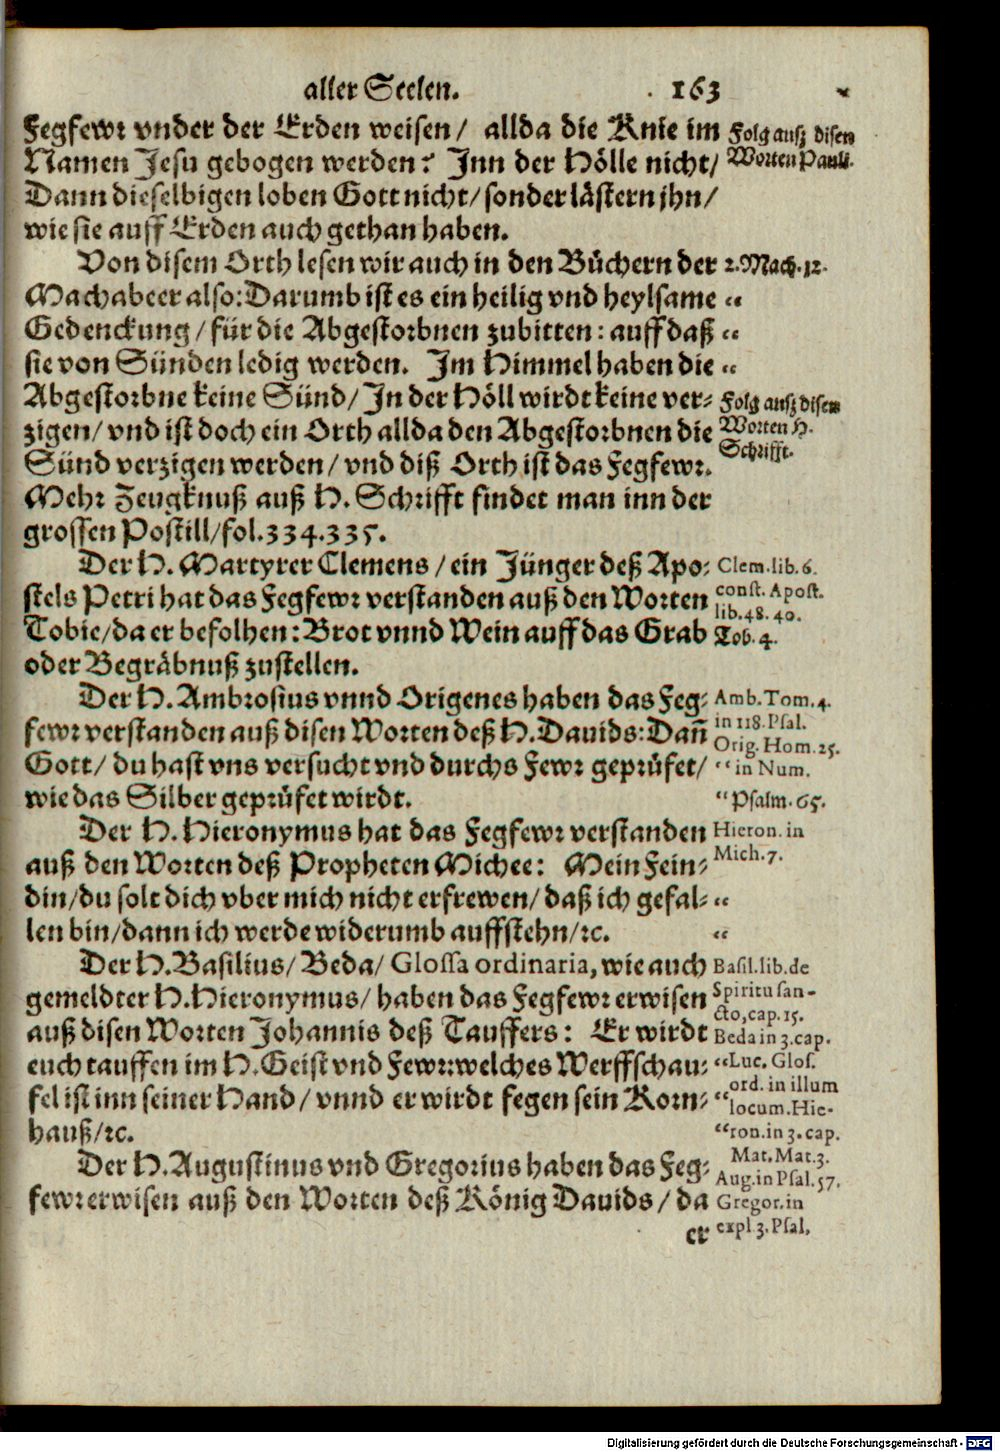 aller Seelen. 163
Fegfewr vnder der Erden weisen/ allda die Knie im
Namen Jesu gebogen werden? Inn der Hölle nicht/
Dann dieselbigen loben Gott nicht/ sonder lästern jhn/
wie sie auff Erden auch gethan haben.
Folg ausz disen
Worten Pauli.
Von disem Orth lesen wir auch in den Büchern der
Machabeer also: Darumb ist es ein heilig vnd heylsame
Gedenckung/ für die Abgestorbnen zubitten: auff daß
sie von Sünden ledig werden. Im Himmel haben die
Abgestorbne keine Sünd/ In der Höll wirdt keine ver-
zigen/ vnd ist doch ein Orth allda den Abgestorbnen die
Sünd verzigen werden/ vnd diß Orth ist das Fegfewr.
Mehr Zeugknuß auß H. Schrifft findet man inn der
grossen Postill/ fol. 334. 335.
2. Mach. 12.
“
“
“
Folg ausz disen
Worten H.
Schrifft.
Der H. Martyrer Clemens/ ein Jünger deß Apo-
stels Petri hat das Fegfewr verstanden auß den Worten
Tobie/ da er befolhen: Brot vnnd Wein auff das Grab
oder Begräbnuß zustellen.
Clem. lib. 6.
const. Apost.
lib. 48. 40.
Tob. 4.
Der H. Ambrosius vnnd Origenes haben das Feg-
fewr verstanden auß disen Worten deß H. Dauids: Dañ
Gott/ du hast vns versucht vnd durchs Fewr geprüfet/
wie das Silber geprüfet wirdt.
Amb. Tom. 4.
in 118. Psal.
Orig. Hom. 25.
“ in Num.
“ Psalm. 65.
Der H. Hieronymus hat das Fegfewr verstanden
auß den Worten deß Propheten Michee: Mein Fein-
din/ du solt dich vber mich nicht erfrewen/ daß ich gefal-
len bin/ dann ich werde widerumb auffstehn/ ꝛc.
Hieron. in
Mich. 7.
“
“
Der H. Basilius/ Beda/ Glossa ordinaria, wie auch
gemeldter H. Hieronymus/ haben das Fegfewr erwisen
auß disen Worten Johannis deß Tauffers: Er wirdt
euch tauffen im H. Geist vnd Fewr: welches Werffschau-
fel ist inn seiner Hand/ vnnd er wirdt fegen sein Korn-
hauß/ ꝛc.
Basil. lib. de
Spiritu san-
cto, cap. 15.
Beda in 3. cap.
“ Luc. Glos.
ord. in illum
“ locum. Hie-
“ ron. in 3. cap.
Mat. Mat. 3.
Der H. Augustinus vnd Gregorius haben das Feg-
fewr erwisen auß den Worten deß König Dauids/ da
er
Aug. in Psal. 57.
Gregor. in
expl 3. Psal,
Digitalisierung gefördert durch die Deutsche Forschungsgemeinschaft - DFG